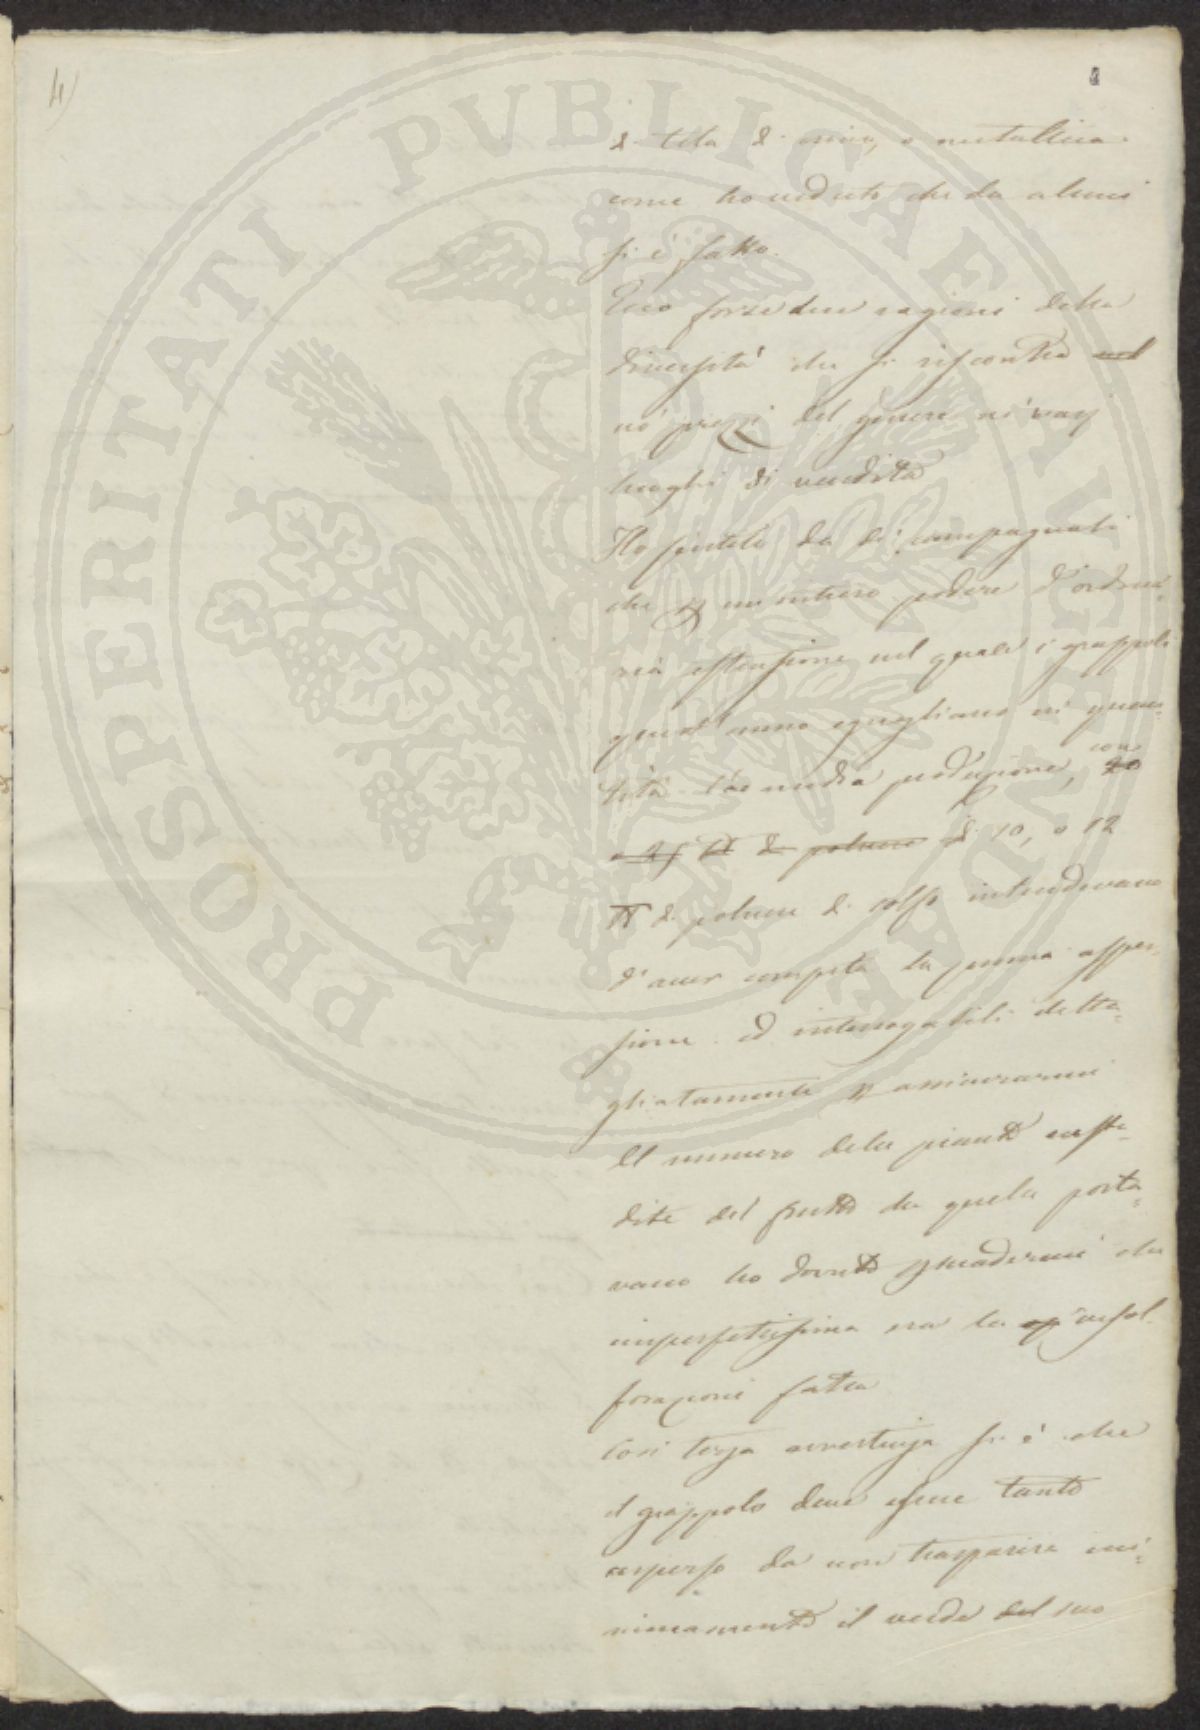 4)
4
PROSPERITATI PVBLICAE AVGENDAE
di tela di crine, o metallica
come ho veduto che da alcuni
si è fatto.
Ecco forse due ragioni della
diversità che si riscontra nel
né prezzi del genere né varj
luoghi di vendita
Ho sentito da de' campagnoli
che p un intiero podere d'ordina=
ria estensione nel quale i grappoli
quest'anno eguagliano in quan=
tità l'ao media produzione, con
20
di 10, o 12
di polvere di solfo intendevano
d'aver compita la prima asper=
sione ed interrogatili detta=
gliatamente p assicurarmi
Il numero dele piante vesti=
dite del frutto da quele porta=
vano ho dovuto psuadermi che
imperfetissima era la insol=
forazioni fatta
Così terza avvertenza si è che
il grappolo deve essere tanto
asperso da non trasparire mi=
nimamente il verde del suo